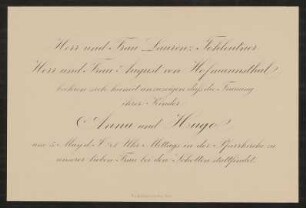 Herr und Frau Laurenz Fohleutner
Herr und Frau August von Hofmannsthal
beehren sich hiemit anzuzeigen daß die Trauung
ihrer Kinder
Anna und Hugo
am May d. J. Uhr Mittags in der Pfarrkirche zu
unserer lieben Frau bei den Schotten stattfindet.